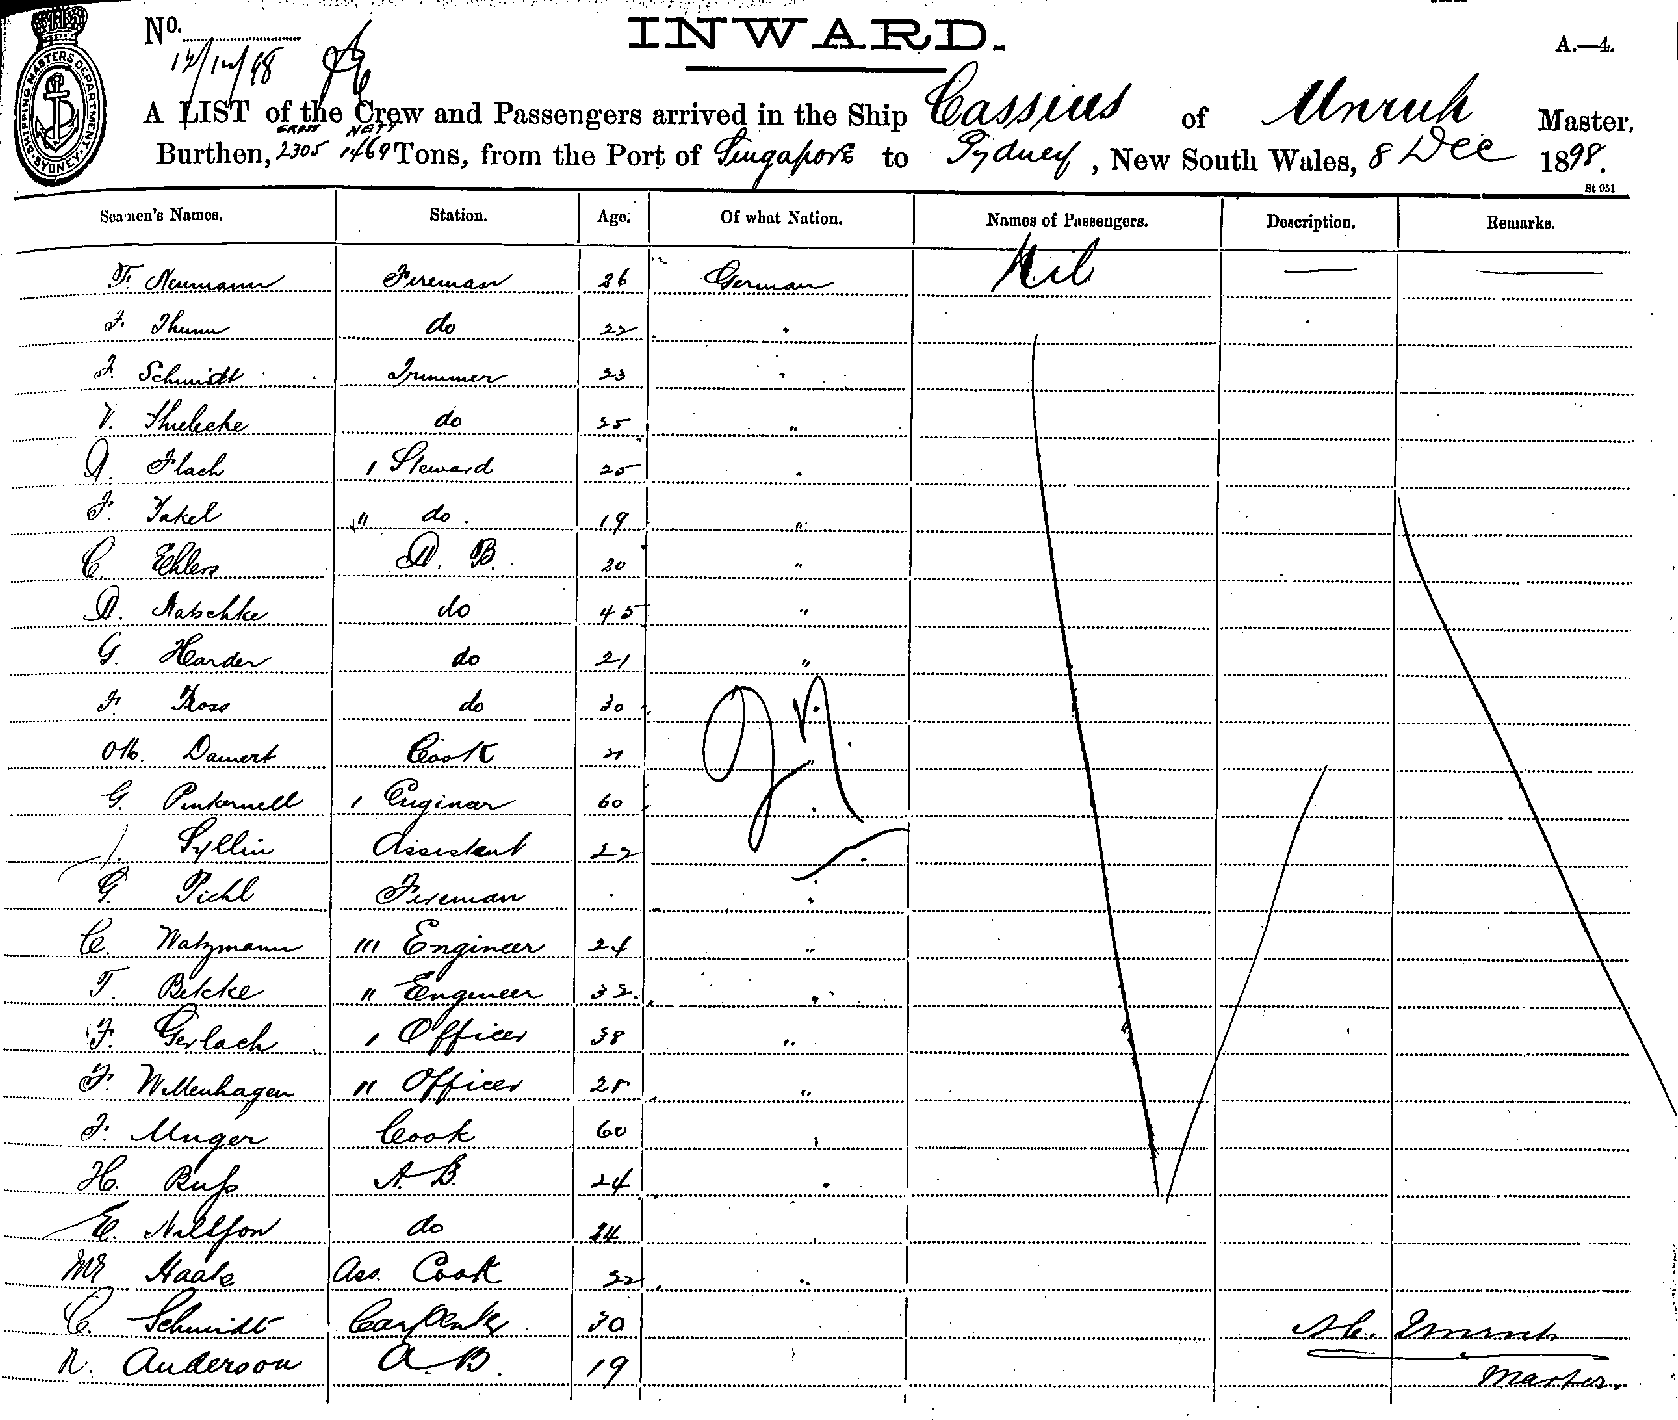 No.
INWARD.
A.—4.
SHIPPING MASTERS DEPARTMENT
SYDNEY
A LIST of the Crew and Passengers arrived in the Ship Cassius of Unruh Master,
GROSS NETT
Burthen, 2305 1469 Tons, from the Port of Singapore to Sydney, New South Wales, 8 Dec 1898.
St 951
Seamen's Names. Station. Age. Of what Nation. Names of Passengers. Description. Remarks.
F. Neumann Fireman 26 German Nil
F. Thum do 22 "
F. Schmidt Trimmer 23 "
V. Thielicke do 25 "
A. Flach 1 Steward 25 "
F. Jakel " do 19 "
C. Ehlers A. B. 20 "
A. Natschke do 45 "
G. Harder do 21 "
F. Ross do 30
Otto. Damert Cook "
G. Pinkernell 1 Enginer 60 "
Syllin Assistent 22 "
G. Piehl Fireman "
C. Watzmann III Engineer 24 "
T. Betcke II Engineer 32 "
F. Gerlach 1 Officer 38 "
F. Wittenhagen II Officer 25 "
F. Unger Cook 60 "
H. Ruß A. B. 24 "
E. Nillson do 24 "
Haake Ass. Cook 22 "
C. Schmidt Carpenter 30
N. Anderson A. B. 19
Unruh
Master.